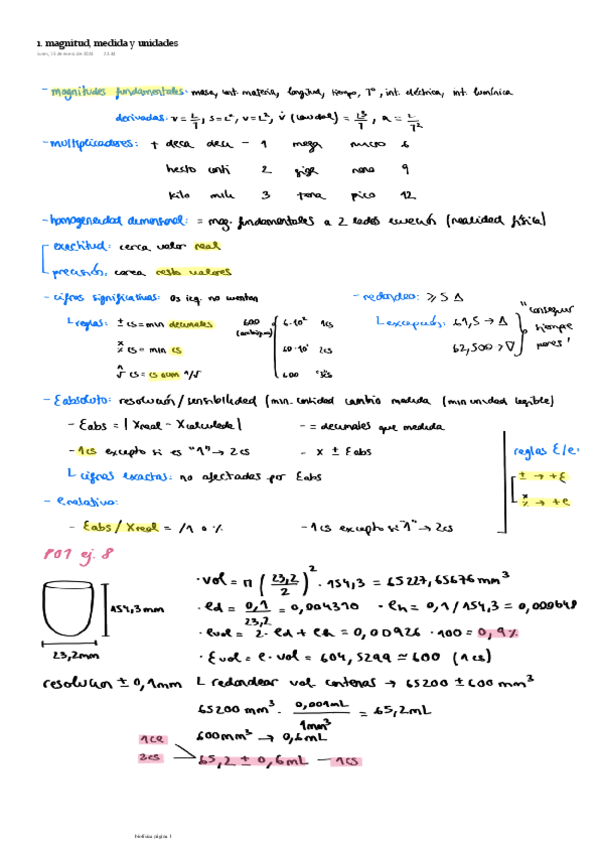 1. magnitud, medida y unidades
- magnitudes fundamentales: masa, cant. materia, longitud, tiempo, Tº, int. eléctrica, int. lumínica
derivadas: v = L/T, s = L², v = L³, V̇ (caudal) = L³/T, a = L/T²
- multiplicadores: + deca deci - 1 mega micro 6
hecto centi 2 giga nano 9
kilo mili 3 tera pico 12
- homogeneidad dimensional: = mag. fundamentales a 2 lados ecuación (realidad física)
exactitud: cerca valor real
precisión: cerca resto valores
- cifras significativas: 0s izq. no cuentan
- redondeo: ≥ 5 Δ
reglas: ± cs = min decimales
600 (ambiguo) 6·10² 1cs
x/÷ cs = min cs
60·10¹ 2cs
600 3cs
excepción: 61,5 → Δ
62,500 > ∇
"conseguir siempre pares"
- Eabsoluto: resolución/sensibilidad (min. cantidad cambio medida (min unidad legible)
- Eabs = |Xreal - Xcalculada|
- = decimales que medida
- 1cs excepto si es "1" → 2cs
- x ± Eabs
cifras exactas: no afectadas por Eabs
reglas E/e:
± → +E
x/÷ → +e
- erelativo:
- Eabs/Xreal = /1 o %
- 1cs excepto si "1" → 2cs
P01 ej. 8
154,3mm
23,2mm
resolución ± 0,1mm
· vol = π (23,2/2)² · 154,3 = 65227,65676 mm³
· ed = 0,1/23,2 = 0,004310 · eh = 0,1/154,3 = 0,000648
· evol = 2 · ed + eh = 0,00926 · 100 = 0,9%
· Evol = e · vol = 604,5299 ≃ 600 (1cs)
redondear vol centenas → 65200 ± 600 mm³
65200 mm³ · 0,001mL/1mm³ = 65,2mL
600mm³ → 0,6mL
3cs
65,2 ± 0,6mL - 1cs